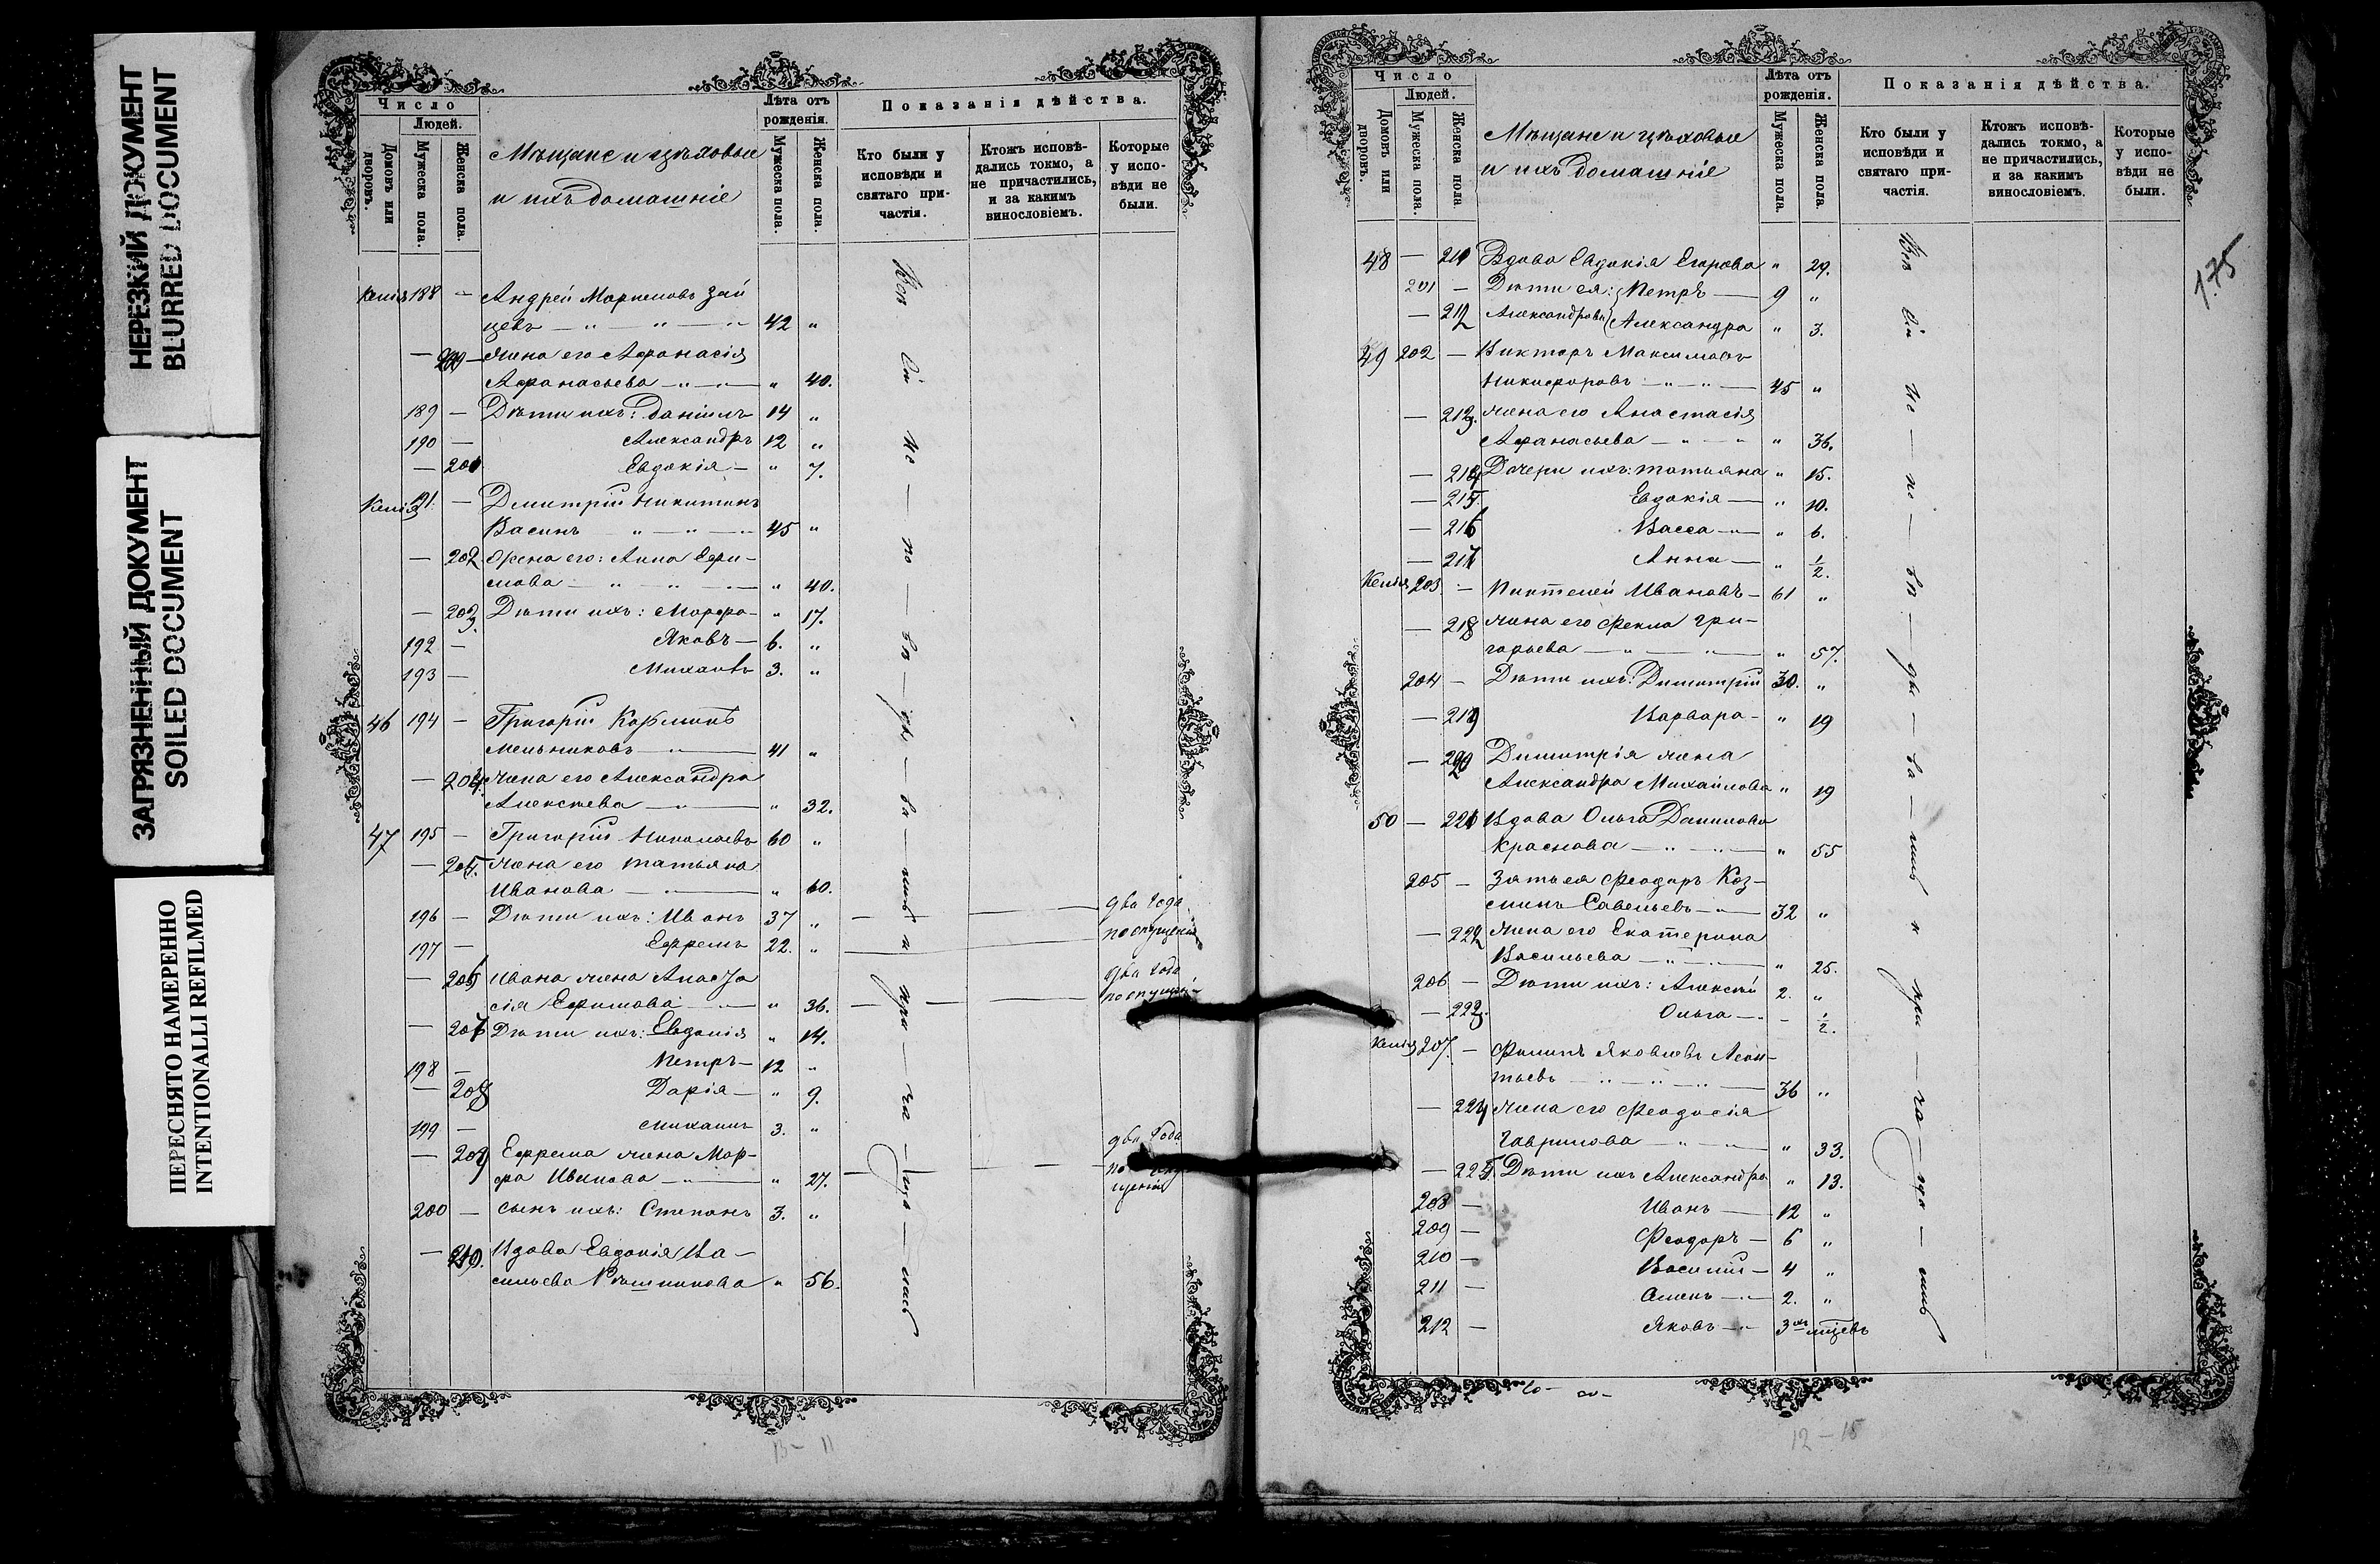 НЕРЕЗКИЙ ДОКУМЕНТ
BLURRED DOCUMENT
ЗАГРЯЗНЕННЫЙ ДОКУМЕНТ
SOILED DOCUMENT
ПЕРЕСНЯТО НАМЕРЕННО
INTENTIONALLI REFILMED
Число
Людей.
Домовъ или дворовъ.
Мужеска пола.
Женска пола.
Мѣщане и цѣховые
и ихъ домашніе
Лѣта отъ рожденія.
Мужеска пола.
Женска пола.
Показанія дѣйства.
Кто были у исповѣди и святаго причастія.
Ктожъ исповѣдались токмо, а не причастились, и за какимъ винословіемъ.
Которые у исповѣди не были.
188 — Андрей Зай
цевъ — " — " — " 42 "
— жена его Афанасія
Афанасьева — " — " 40.
189 — Дѣти ихъ: Даніилъ 14 "
190 — Александръ 12 "
— 201 Евдокія — " 7.
191. — Дмитрій Никитинъ
Васинъ " — " — " 45 "
— 202 Жена его: Анна Ефи-
мова — " — " — " 40.
— 203 Дѣти ихъ: Марфа — " 17.
192 — Яковъ — 6. "
193 — Михаилъ 3. "
46 194 — Григорій Козминъ
Мельниковъ — " — 41 "
— 204. жена его Александра
Алексѣева — " — " 32.
47 195 — Григорій Николаевъ 60 "
— 205. жена его Татьяна
Иванова — " — " 60.
196 — Дѣти ихъ: Иванъ 37 " — — два года
по опущенію
197 — Ефремъ 22. "
— 206 Ивана жена Анаста
сія Ефимова — " — " 36. — — два года
— 207 Дѣти ихъ: Евдокія " 14.
198 — Петръ — 12 "
— 208 Дарія — " 9.
199 — Михаилъ 3. "
— 209 Ефрема жена Мар-
фа Иванова — " — " 27. — — два года
200 — сынъ ихъ: Степанъ 3. "
— 210. Вдова Евдокія Ва-
сильева " 56.
Всѣ сіи ис — по — вѣ — ды — ва — лись и при — ча — ща — лись
13 – 11
175
Число
Людей.
Домовъ или дворовъ.
Мужеска пола.
Женска пола
Мѣщане и цѣховые
и ихъ домашніе
Лѣта отъ рожденія.
Мужеска пола.
Женска пола.
Показанія дѣйства.
Кто были у исповѣди и святаго причастія.
Ктожъ исповѣдались токмо, а не причастились, и за какимъ винословіемъ.
Которые у исповѣди не были.
48 — 211 Вдова Евдокія Егорова " 29.
201 — Дѣти ея: Петръ — 9 "
— 212 Александровы Александра " 3.
49 202 — Викторъ Максимовъ
Никифоровъ — " — " — 45 "
— 213. жена его Анастасія
Афанасьева — " — " " 36.
— 214 Дочери ихъ: Татьяна " 15.
— 215 Евдокія — " 10.
— 216 Васса — " 6.
— 217 Анна — " 1/2.
203 — Ивановъ — 61 "
— 218 жена его Фекла Гри-
горьева — " — " — " 57.
204 — Дѣти ихъ: Димитрій 30. "
— 219 Варвара — " 19
— 220 Димитрія жена
Александра Михайлова " 19
50 — 221 Вдова Ольга Данилова
Краснова — " — " — " 55
205 — Зять ея Феодоръ Коз-
минъ Савельевъ — " — 32 "
— 222 жена его Екатерина
Васильева — " — " 25.
206 — Дѣти ихъ: Алексѣй 2. "
— 223. Ольга — . — 1/2.
207. — Филипъ Яковлевъ Леон-
тьевъ — " — " — " — 36 "
— 224 жена его Феодосія
Гаврилова — " — " " 33.
— 225. Дѣти ихъ Александра " 13.
208 — Иванъ — 12 "
209 — Феодоръ — 6 "
210 — Василій — 4 "
211 — Семенъ — " 2. "
212 — Яковъ — " 3хъ мѣсцевъ
Всѣ сіи ис — по — вѣ — ды — ва — лись и при — ча — ща — лись
12 – 15